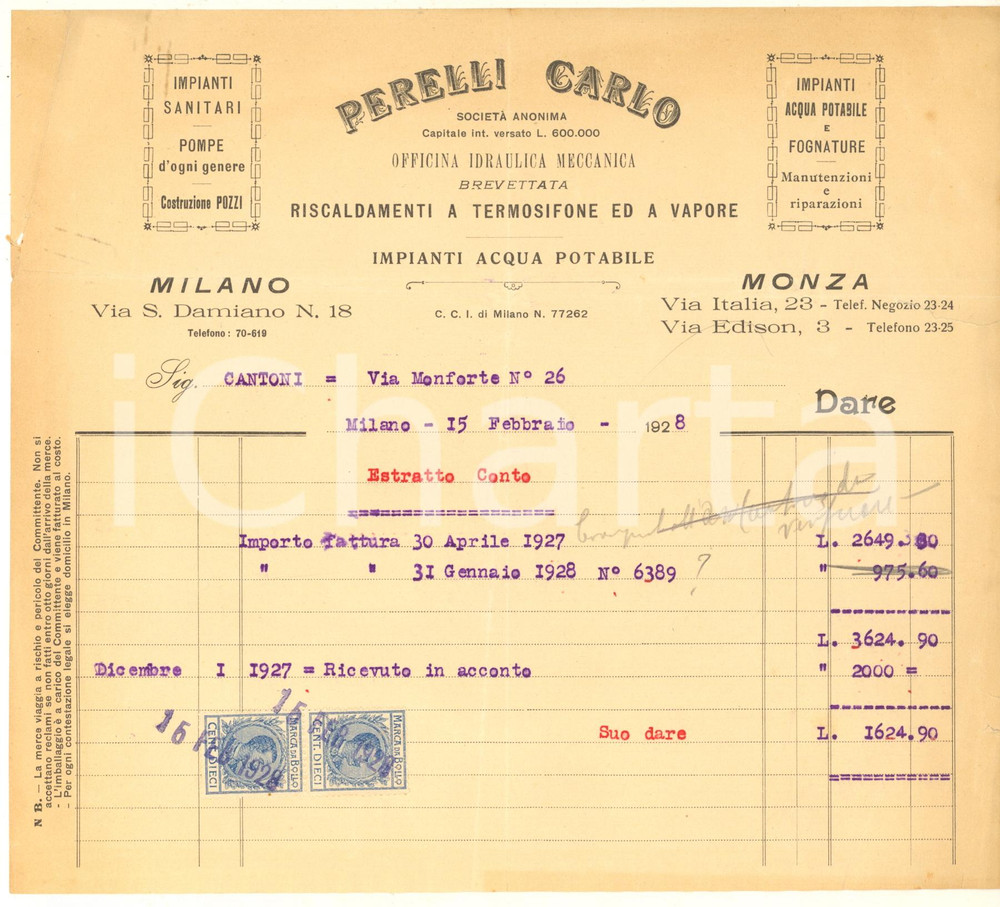 IMPIANTI
SANITARI
POMPE
d'ogni genere
Costruzione POZZI
PERELLI CARLO
SOCIETÀ ANONIMA
Capitale int. versato L. 600.000
OFFICINA IDRAULICA MECCANICA
BREVETTATA
RISCALDAMENTI A TERMOSIFONE ED A VAPORE
IMPIANTI ACQUA POTABILE
C. C. I. di Milano N. 77262
IMPIANTI
ACQUA POTABILE
E
FOGNATURE
Manutenzioni
e
riparazioni
MILANO
Via S. Damiano N. 18
Telefono: 70-619
MONZA
Via Italia, 23 - Telef. Negozio 23-24
Via Edison, 3 - Telefono 23-25
Sig. CANTONI = Via Monforte N° 26
Milano - 15 Febbraio - 1928
Dare
Estratto Conto
Importo fattura 30 Aprile 1927 L. 2649.30
" " 31 Gennaio 1928 N° 6389 ? " 975.60
L. 3624.90
Dicembre 1 1927 = Ricevuto in acconto " 2000 =
Suo dare L. 1624.90
MARCA DA BOLLO
CENT. DIECI
MARCA DA BOLLO
CENT. DIECI
15 FEB 1928
15 FEB 1928
N B. — La merce viaggia a rischio e pericolo del Committente. Non si
accettano reclami se non fatti entro otto giorni dall'arrivo della merce.
- L'imballaggio è a carico del Committente e viene fatturato al costo.
- Per ogni contestazione legale si elegge domicilio in Milano.
iCharta